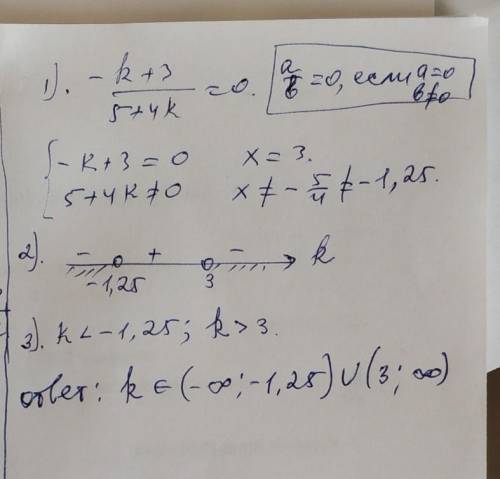 1). (-k+3)/(5+4k) = 0. a/b = 0, если a=0 b≠0
{ -k+3 = 0 x = 3.
5+4k ≠ 0 x ≠ - 5/4 ≠ -1,25.
2). - + - k
-1,25 3
3). k < -1,25; k > 3.
ответ: k ∈ (-∞; -1,25) ∪ (3; ∞)